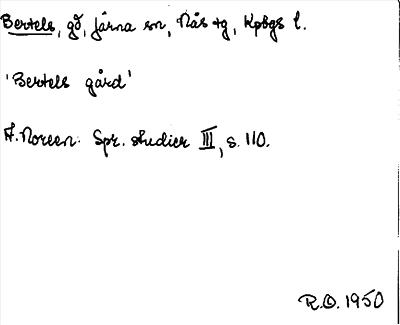 Bertels, gd, Järna sn, Nås tg, Kpbgs l.
'Bertels gård'
A. Noreen: Spr. studier III, s. 110.
R.O. 1950